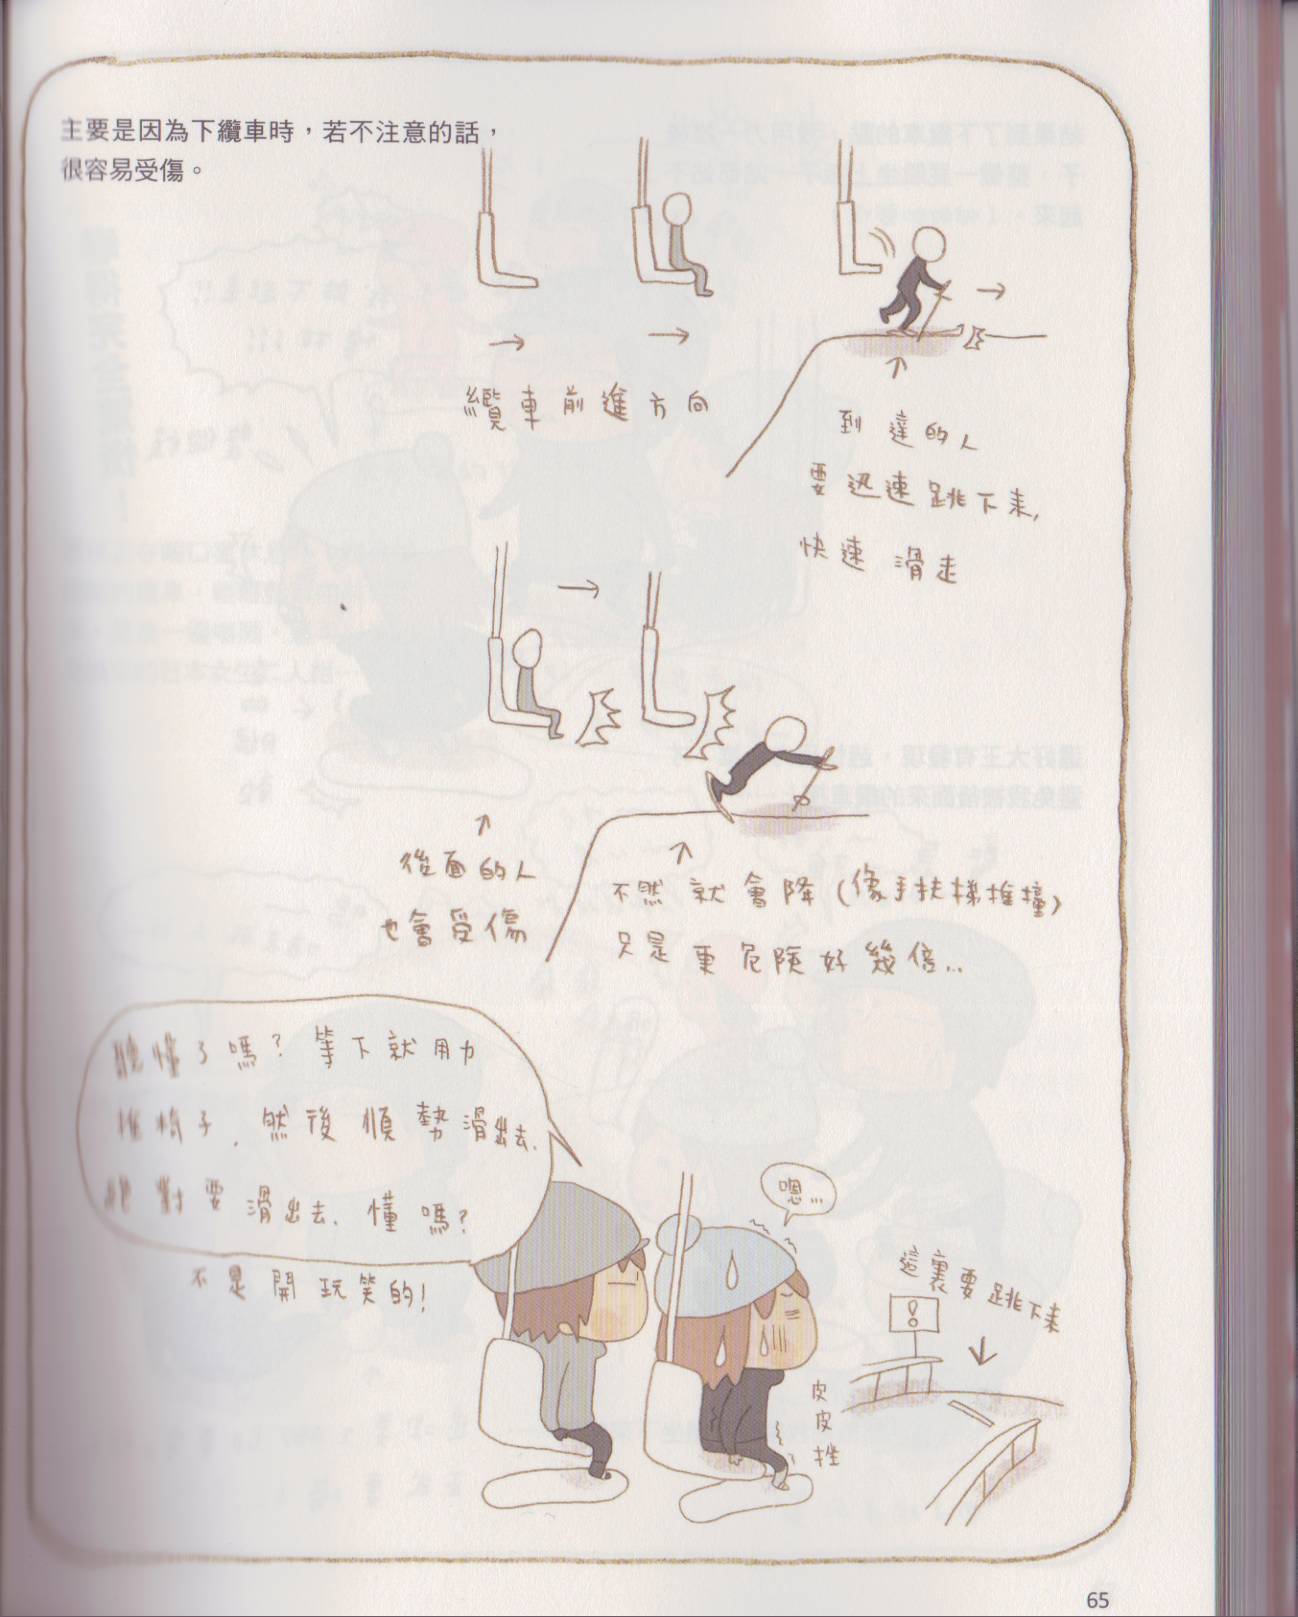 主要是因為下纜車時，若不注意的話，
很容易受傷。
纜車前進方向
到達的人
要迅速跳下來,
快速滑走
後面的人
也會受傷
不然就會降(像手扶梯推撞)
只是更危險好幾倍...
聽懂了嗎? 等下就用力
推椅子, 然後順勢滑出去.
絕對要滑出去. 懂嗎?
不是開玩笑的!
嗯...
這裏要跳下來
!
皮皮挫
65